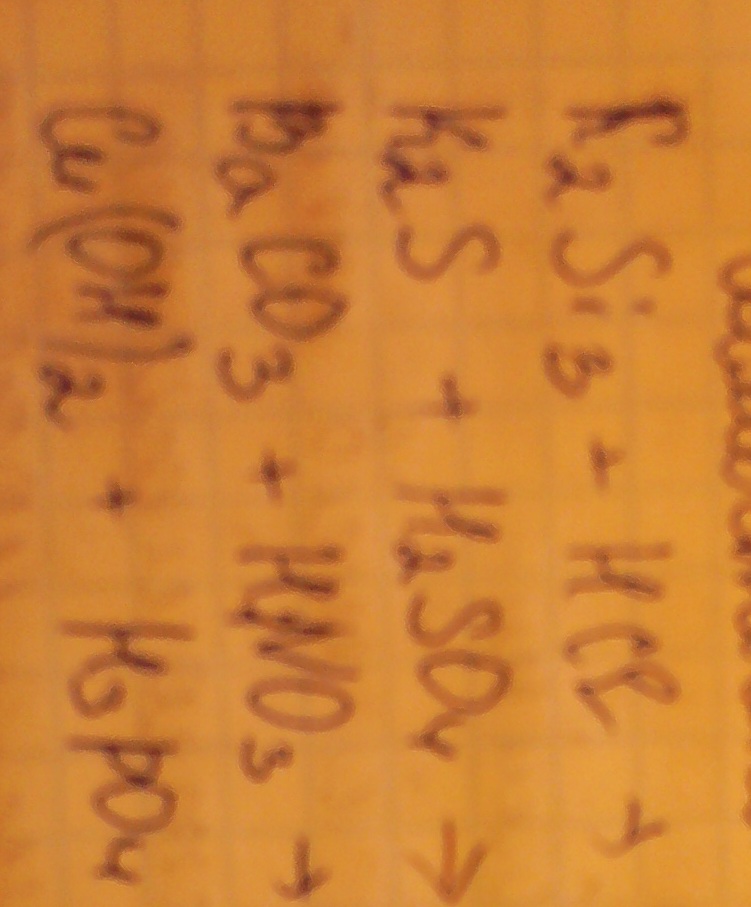 K₂Si₃ + HCl →
K₂S + H₂SO₄ →
BaCO₃ + HNO₃ →
Cu(OH)₂ + H₃PO₄